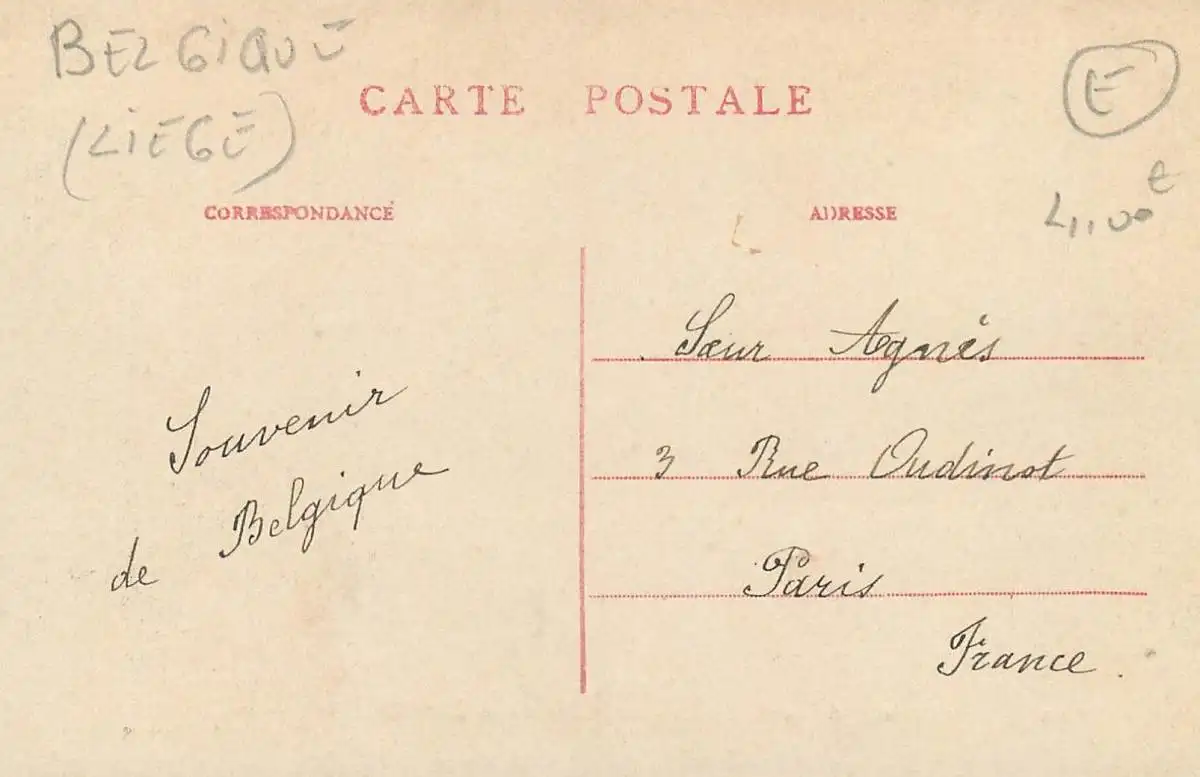 BELGIQUE
(LIEGE)
CARTE POSTALE
E
4,00€
CORRESPONDANCE
ADRESSE
Souvenir
de Belgique
Sœur Agnès
3 Rue Oudinot
Paris
France.